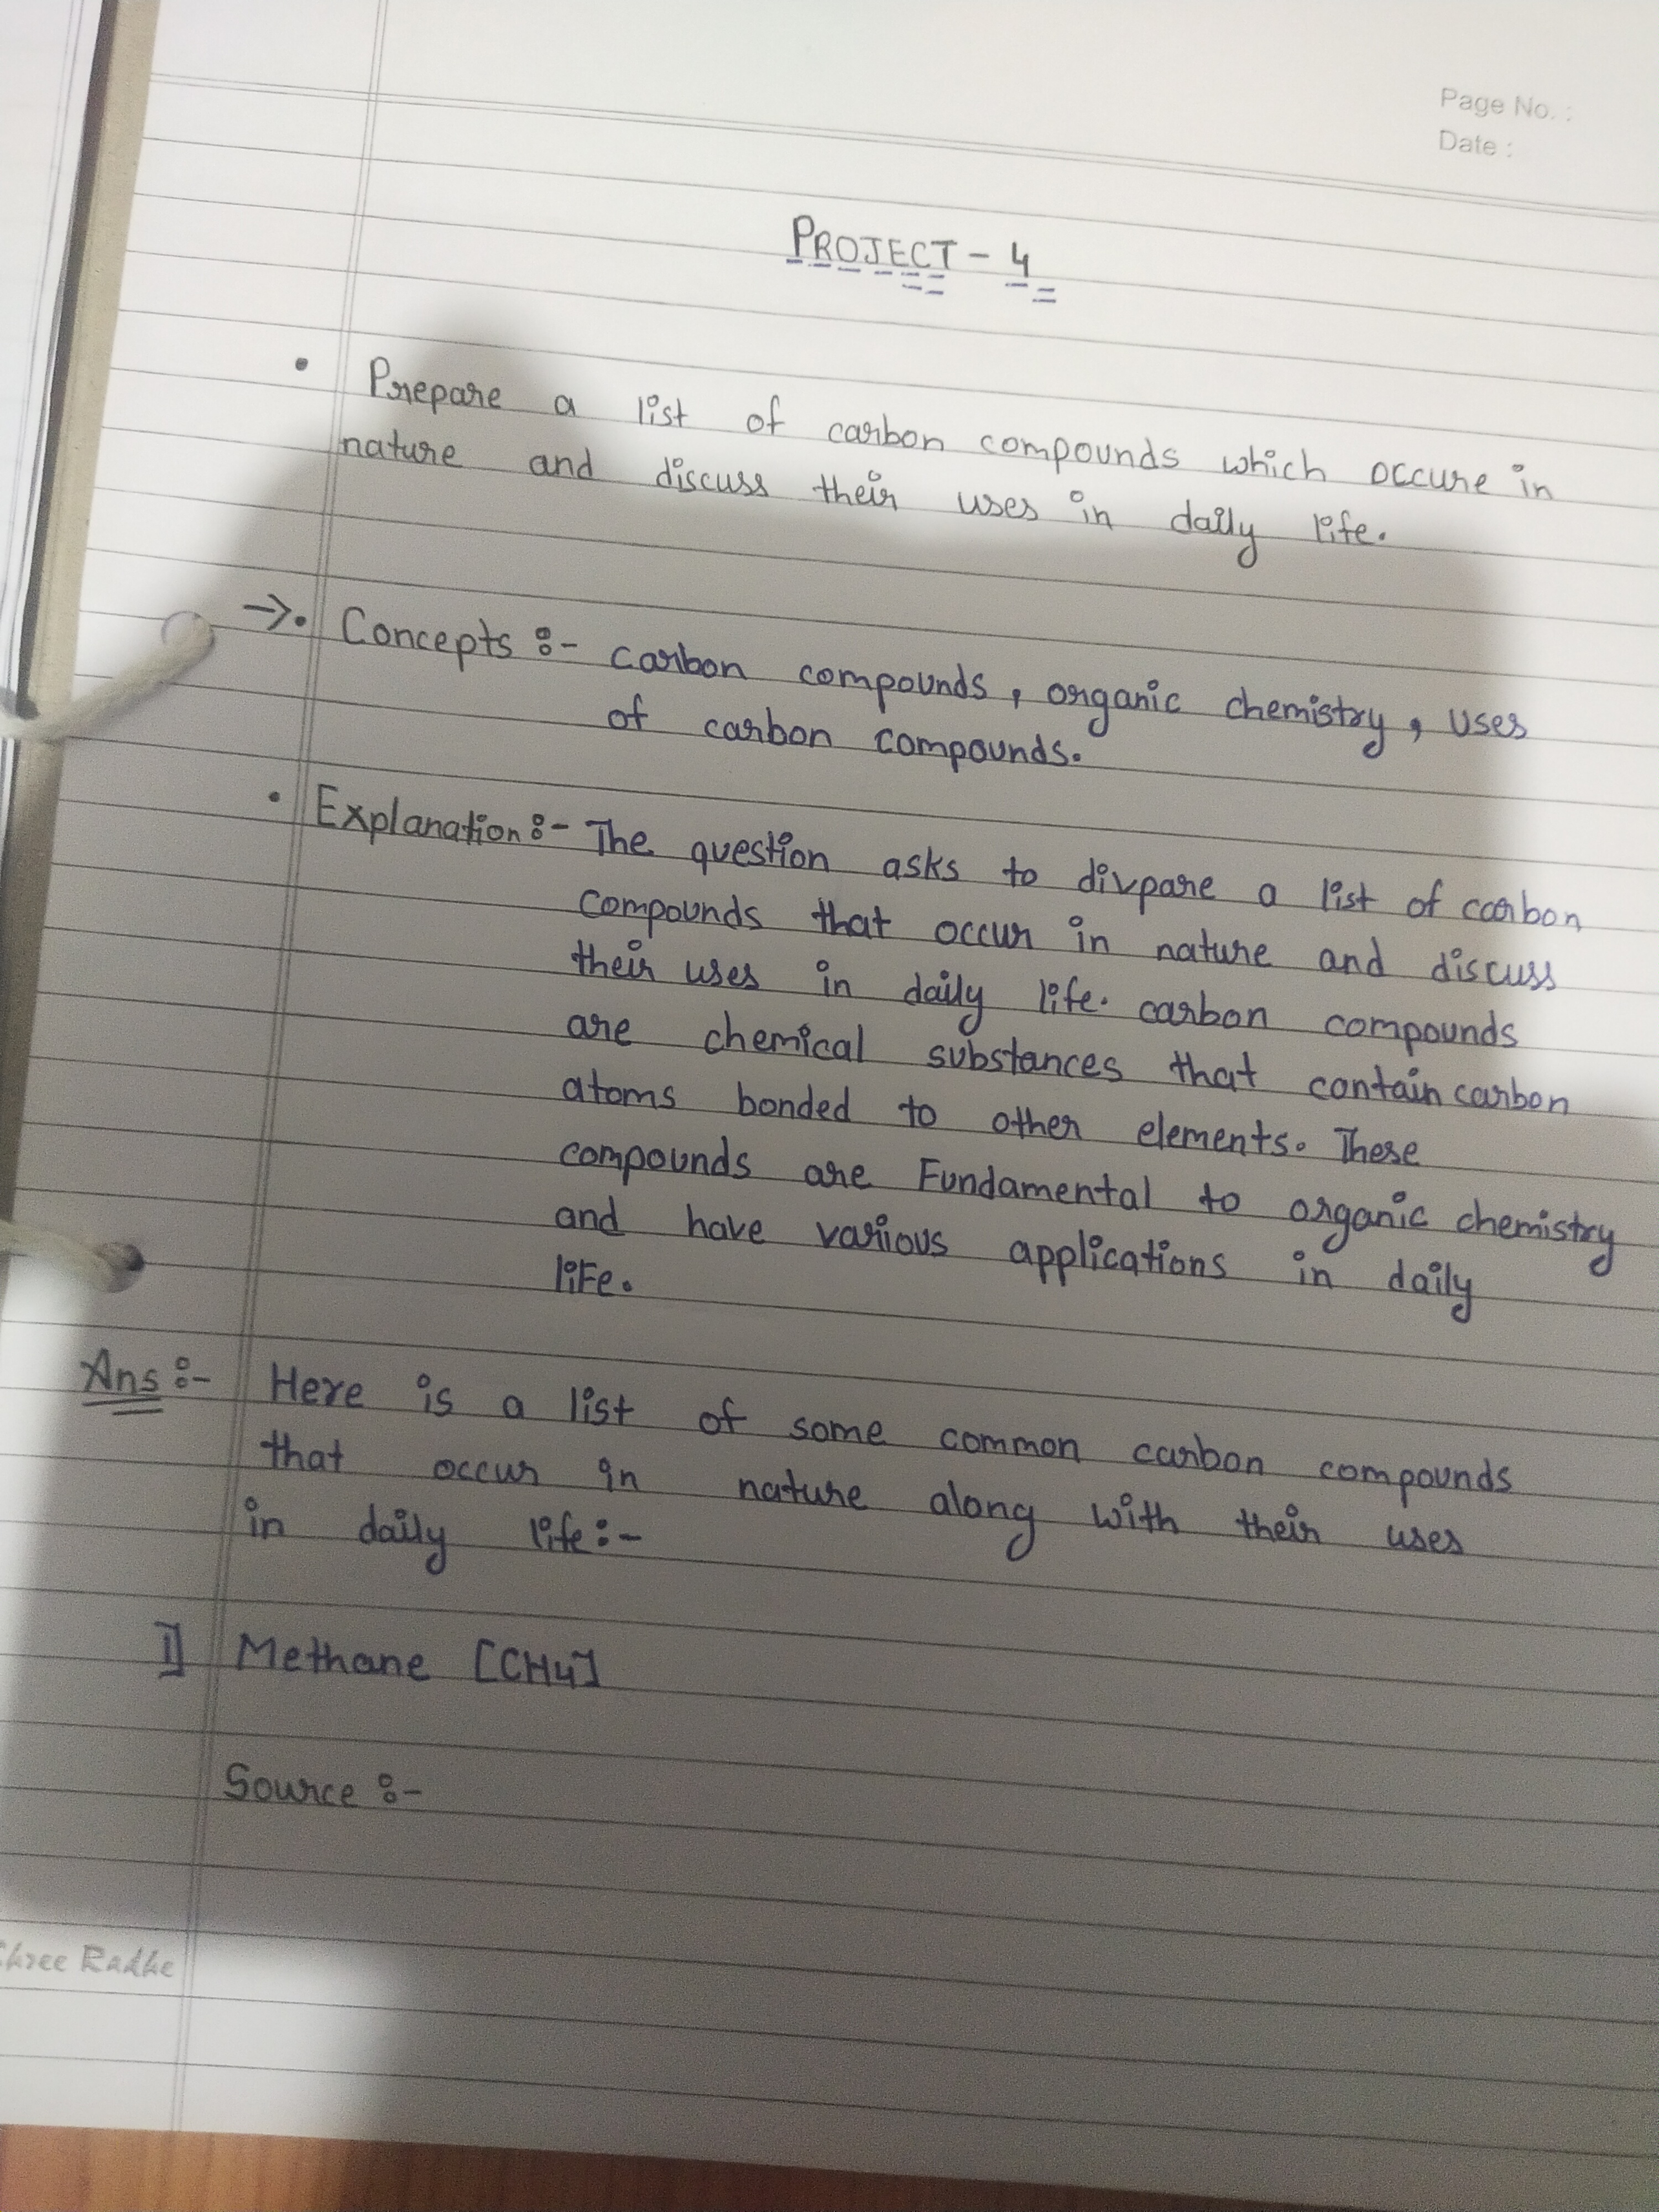 Page No. :
Date :
PROJECT - 4
• Prepare a list of carbon compounds which occure in
nature and discuss their uses in daily life.
→• Concepts :- carbon compounds, organic chemistry, uses
of carbon compounds.
• Explanation :- The question asks to divpare a list of carbon
compounds that occur in nature and discuss
their uses in daily life. carbon compounds
are chemical substances that contain carbon
atoms bonded to other elements. These
compounds are Fundamental to organic chemistry
and have various applications in daily
liFe.
Ans :- Here is a list of some common carbon compounds
that occur in nature along with their uses
in daily life :-
1] Methane [CH4]
Source :-
Shree Radhe